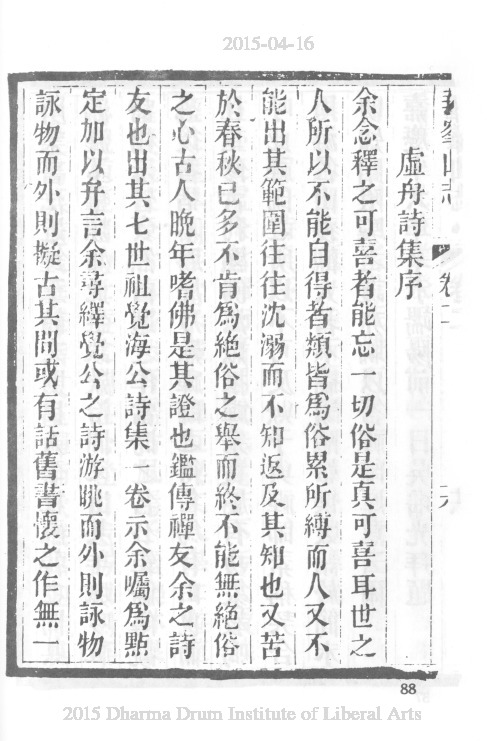 2015-04-16
山志 卷十
虛舟詩集序
余念釋之可喜者能忘一切俗是真可喜耳世之
人所以不能自得者類皆爲俗累所縛而人又不
能出其範圍往往沈溺而不知返及其知也又苦
於春秋已多不肯爲絕俗之舉而終不能無絕俗
之心古人晚年嗜佛是其證也鑑傳禪友余之詩
友也出其七世祖覺海公詩集一卷示余囑爲點
定加以弁言余尋繹覺公之詩游眺而外則詠物
詠物而外則擬古其間或有話舊書懷之作無一
88
2015 Dharma Drum Institute of Liberal Arts